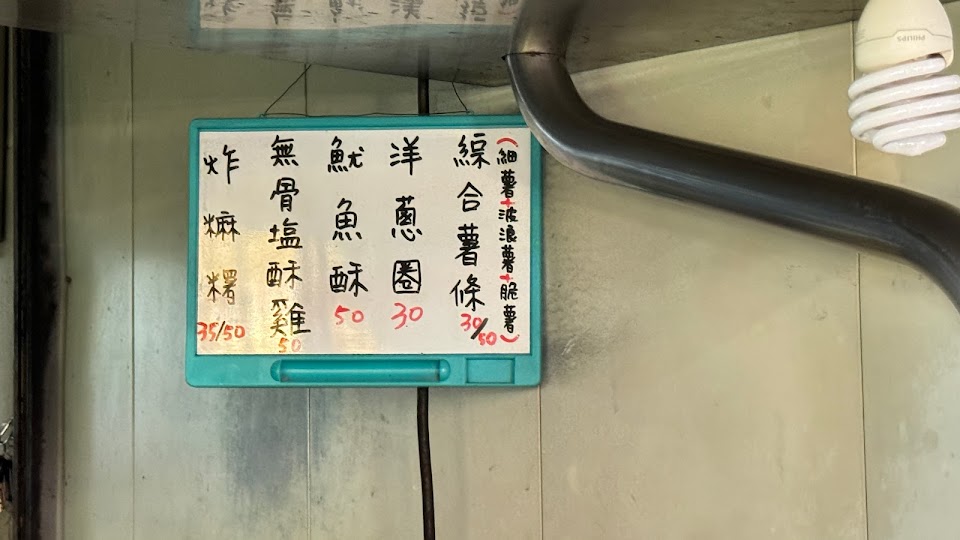 綜合薯條 30/50
(細薯+波浪薯+脆薯)
洋蔥圈 30
魷魚酥 50
無骨塩酥雞 50
炸糍糬 35/50
PHILIPS